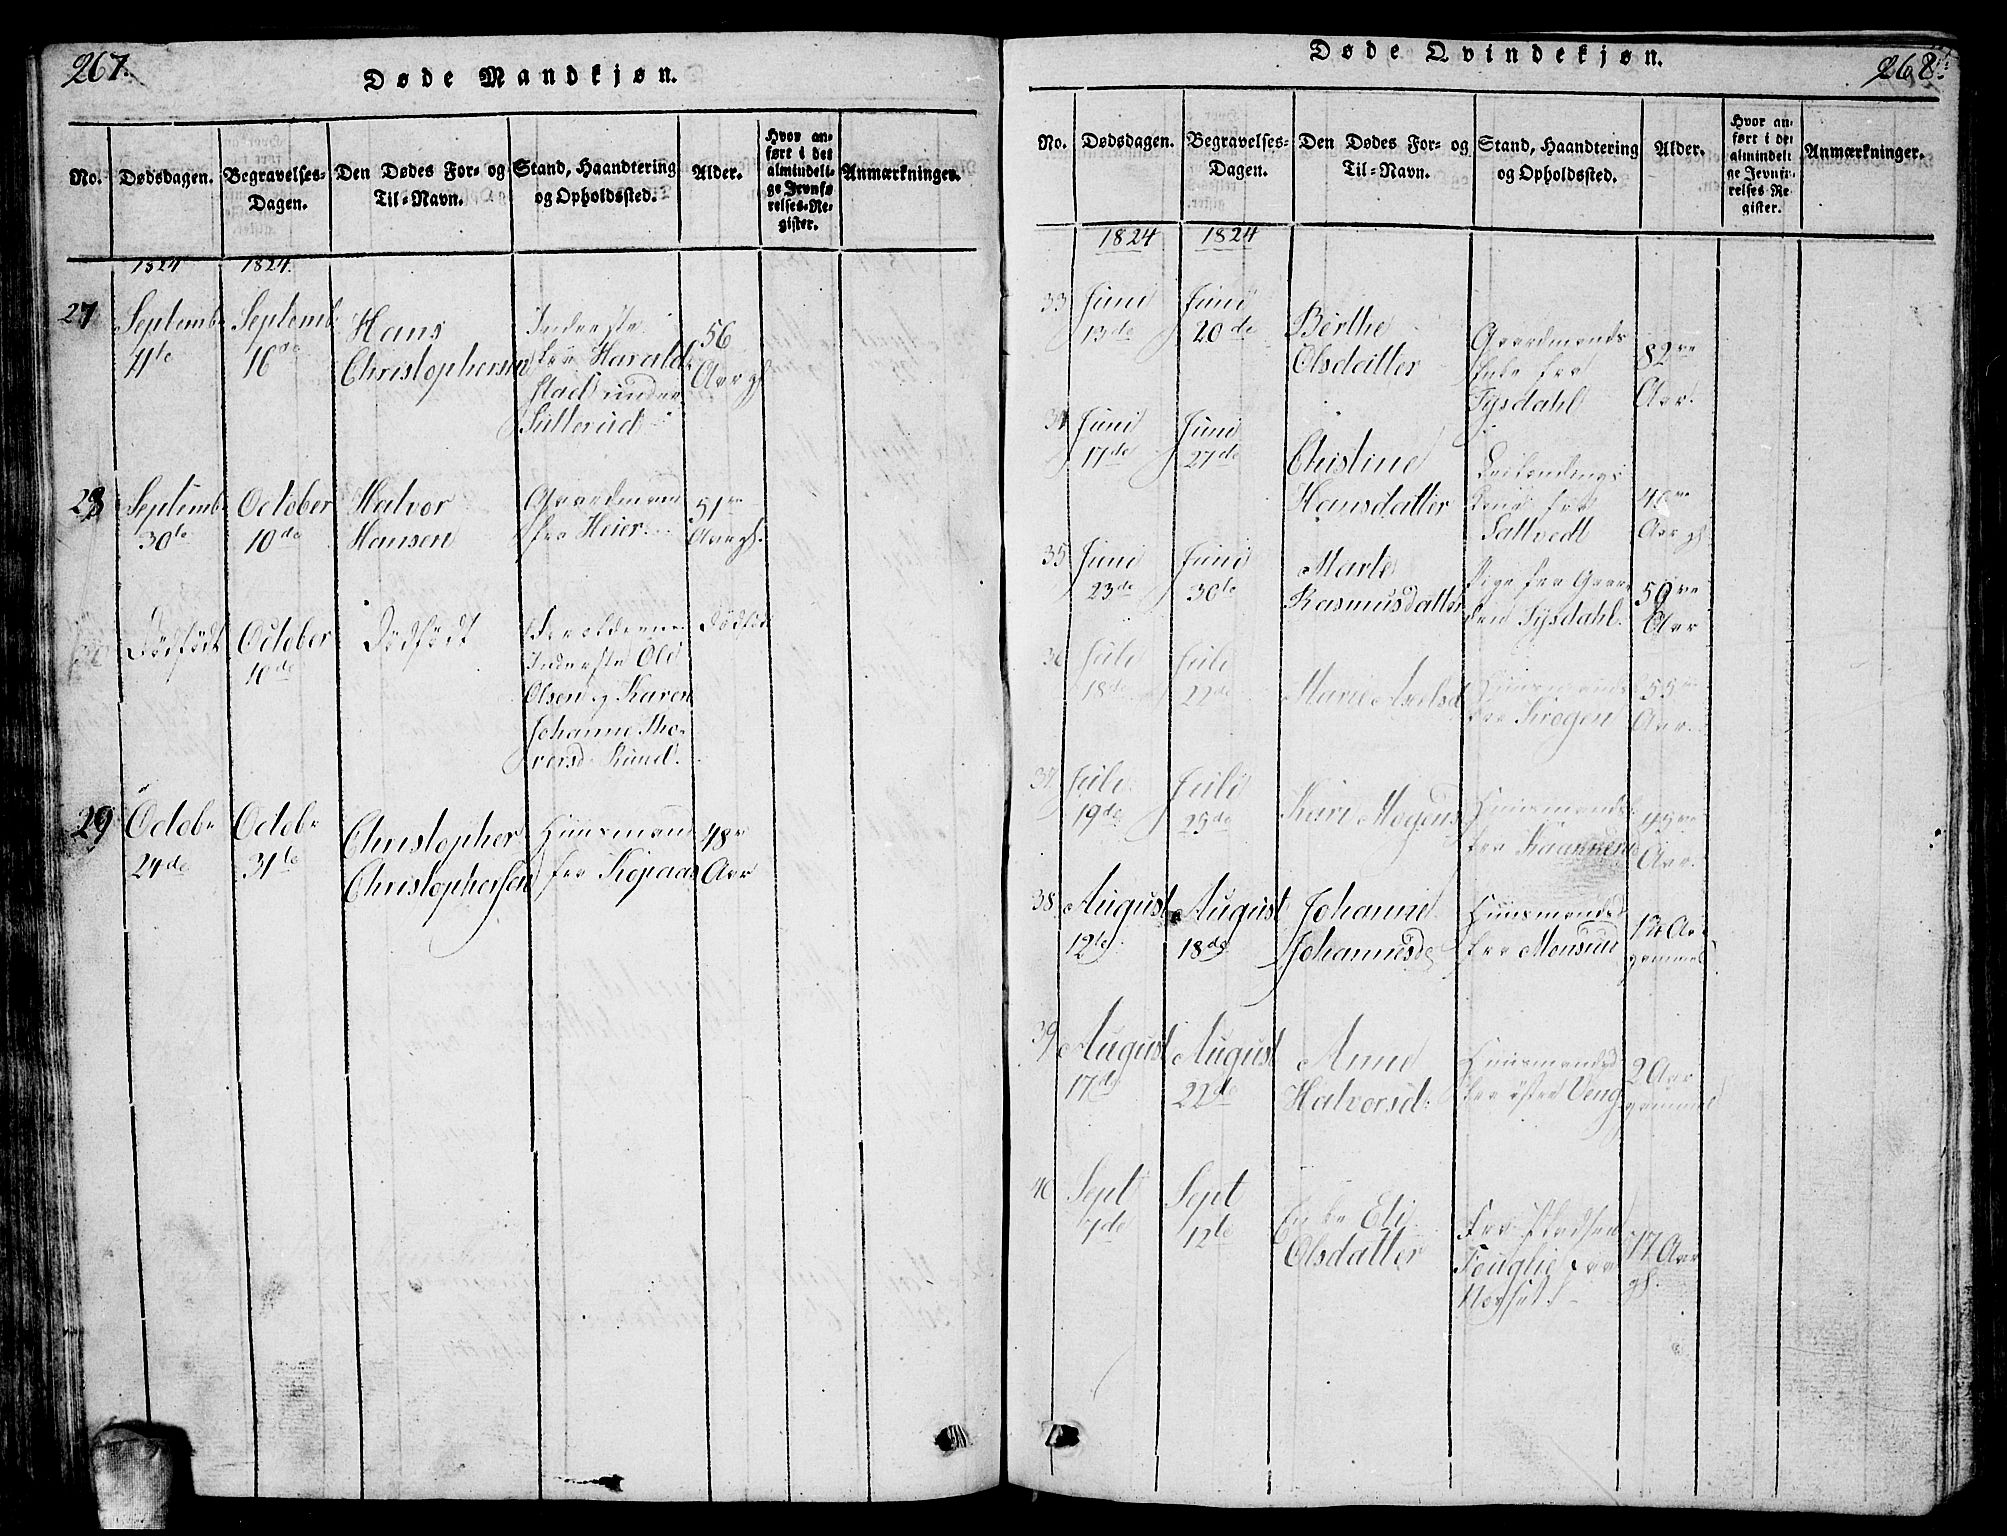 267.
Døde Mandkjøn.
No.
Dødsdagen.
Begravelses-
Dagen.
Den Dødes For- og
Til-Navn.
Stand, Haandtering
og Opholdssted.
Alder.
Hvor an-
ført i det
almindeli-
ge Jevnfø-
relses-Re-
gister.
Anmærkninger.
1824 1824.
27
Septembr
11te
Septembr
16de
Hans
Christophersen
Inderste
fra Harald
stad under
Sulterud
56
Aar gl
28
Septembr
30te
October
10de
Halvor
Hansen
Gaardmand
fra Heier
51
Aar gl.
Dödfödt
October
10de
Dödfödt
Forældrene
Inderste Ole
Olsen og Karen
Johanne Tho-
versd. Rund.
Dödfödt
29
Octobr
24de
Octobr
31te
Christopher
Christophersen
Huusmand
fra Kopaas
48
Aar
Døde Qvindekjøn.
268.
No.
Dødsdagen.
Begravelses-
Dagen.
Den Dødes For- og
Til-Navn.
Stand, Haandtering
og Opholdssted.
Alder.
Hvor an-
ført i det
almindeli-
ge Jevnfø-
relses-Re-
gister.
Anmærkninger.
1824 1824
33
Juni
13de
Juni
20de
Berthe
Olsdatter
Gaardmands
Enke fra
Tysdahl
82
Aar.
34
Juni
17de
Juni
27de
Christine
Hansdatter
Leilendings
Kone fra
Sattvedt
40
Aar gl.
35
Juni
23de
Juni
30te
Marte
Rasmusdatter
Pige fra Gaar
den Tysdahl.
50
Aar
36
Juli
18de
Juli
22de
Marie Axelsd
Huusmands
fra Krogen
55
Aar.
37
Juli
19de
Juli
25de
Kari Mogens
Huusmands
fra
Aar.
38
August
12te
August
18de
Johanne
Johannesd
Huusmandsd
fra Monsrud
12 Aar
gammel
39
August
17de
August
22de
Anne
Halvorsd.
Huusmandsd
fra östre Veng
2 Aar
gammel
40
Sept
7de
Sept
12te
Enke Eli
Olsdatter
Fra Pladsen
Fouglie fra
77 Aar
gl.